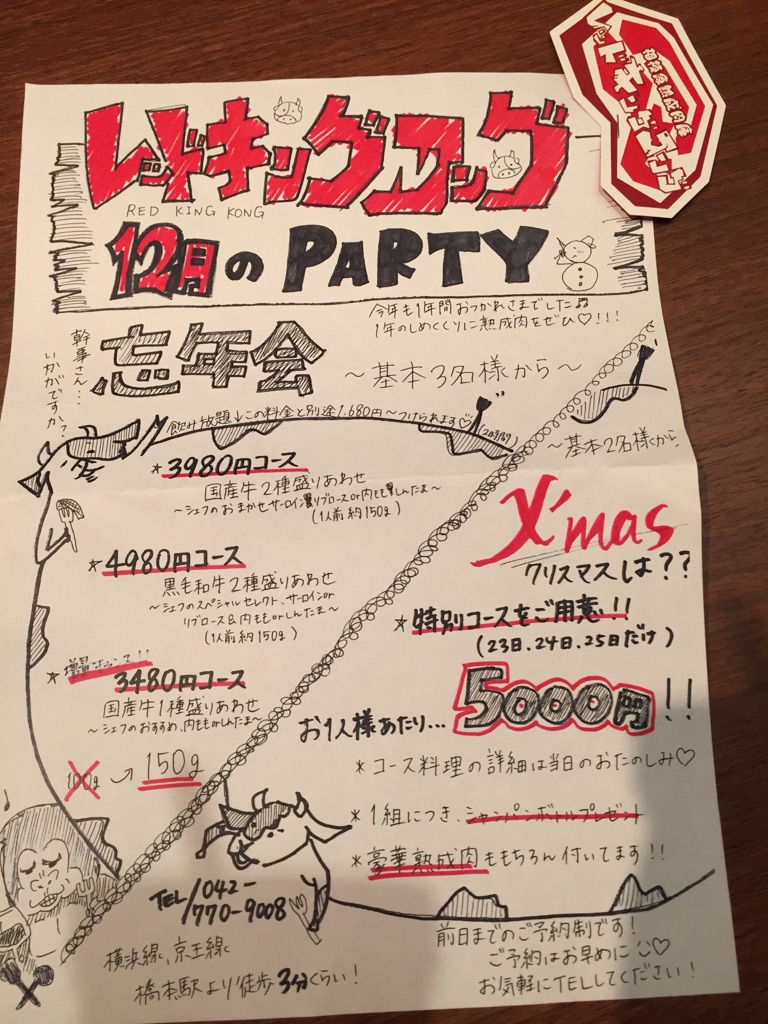 レッドキングコング
レッドキングコング
RED KING KONG
12月の PARTY
今年も1年間おつかれさまでした♫
1年のしめくくりに熟成肉をぜひ♡!!!
幹事さん・・・
いかがですか?
忘年会
〜基本3名様から〜
飲み放題↓この料金と別途1.680円〜つけられます♡(2時間)
*3980円コース
国産牛2種盛りあわせ
〜シェフのおまかせサーロインorリブロースor内ももorしんたま〜
(1人前約150g)
*4980円コース
黒毛和牛2種盛りあわせ
〜シェフのスペシャルセレクト、サーロインor
リブロース&内ももorしんたま〜
(1人前約150g)
3480円コース
国産牛1種盛りあわせ
〜シェフのおすすめ、内ももorしんたま〜
100g → 150g
〜基本2名様から
X'mas
クリスマスは??
*特別コースをご用意!!
(23日.24日.25日だけ)
お1人様あたり...5000円!!
*コース料理の詳細は当日のおたのしみ♡
*1組につき、シャンパンボトルプレゼント
*豪華熟成肉ももちろん付いてます!!
TEL/042-
770-9008
横浜線、京王線、
橋本駅より徒歩3分くらい!
前日までのご予約制です!
ご予約はお早めに♡
お気軽にTELしてください!